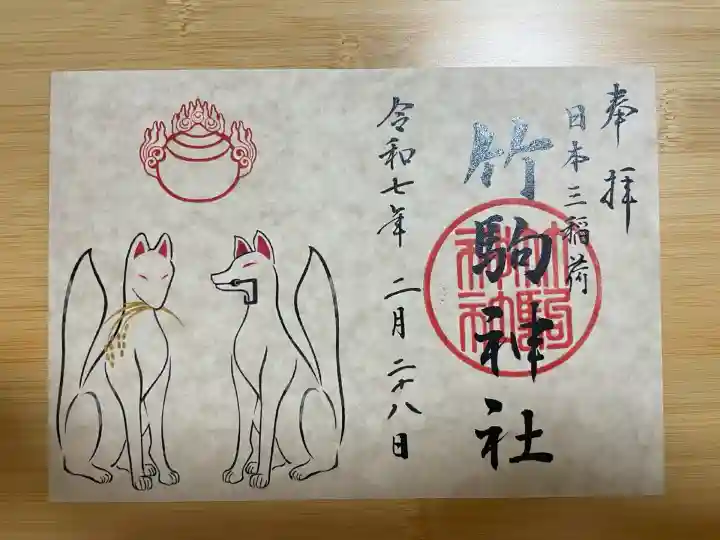 奉拝
日本三稲荷
竹駒神社
竹駒神社
令和七年 二月 二十八日